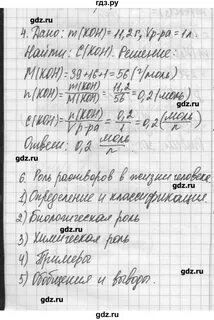 4. Дано: m(KOH) = 11,2 г, Vр-ра = 1 л.
Найти: C(KOH). Решение:
M(KOH) = 39+16+1 = 56 (г/моль)
n(KOH) = m(KOH)/M(KOH) = 11,2/56 = 0,2 (моль)
C(KOH) = n(KOH)/Vр-ра = 0,2/1 = 0,2 (моль/л)
Ответ: 0,2 моль/л
6. Роль растворов в жизни человека.
1) Определение и классификация
2) Биологическая роль
3) Химическая роль
4) Примеры
5) Обобщения и выводы.